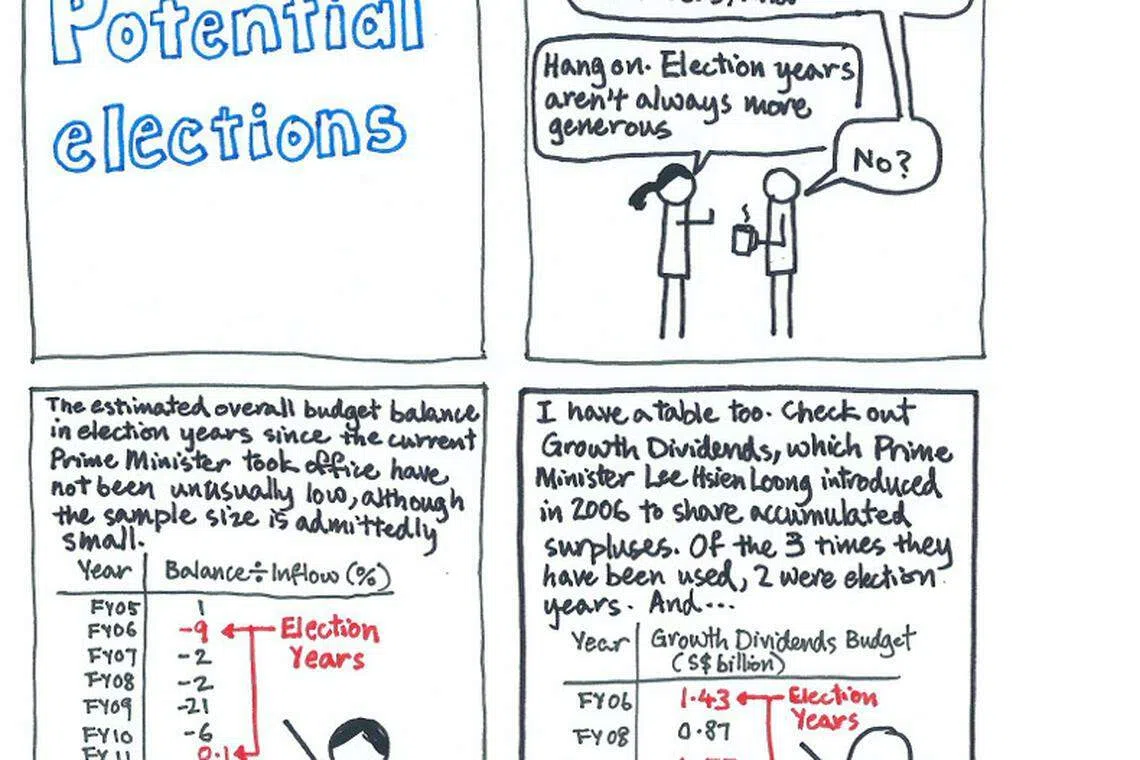 Potential
elections
Hang on. Election years
aren't always more
generous
No?
The estimated overall budget balance
in election years since the current
Prime Minister took office have
not been unusually low, although
the sample size is admittedly
small.
Year Balance÷Inflow (%)
FY05 1
FY06 -9 Election
Years
FY07 -2
FY08 -2
FY09 -21
FY10 -6
FY11 0.1
I have a table too. Check out
Growth Dividends, which Prime
Minister Lee Hsien Loong introduced
in 2006 to share accumulated
surpluses. Of the 3 times they
have been used, 2 were election
years. And...
Year Growth Dividends Budget
(S$ billion)
FY06 1.43 Election
Years
FY08 0.87